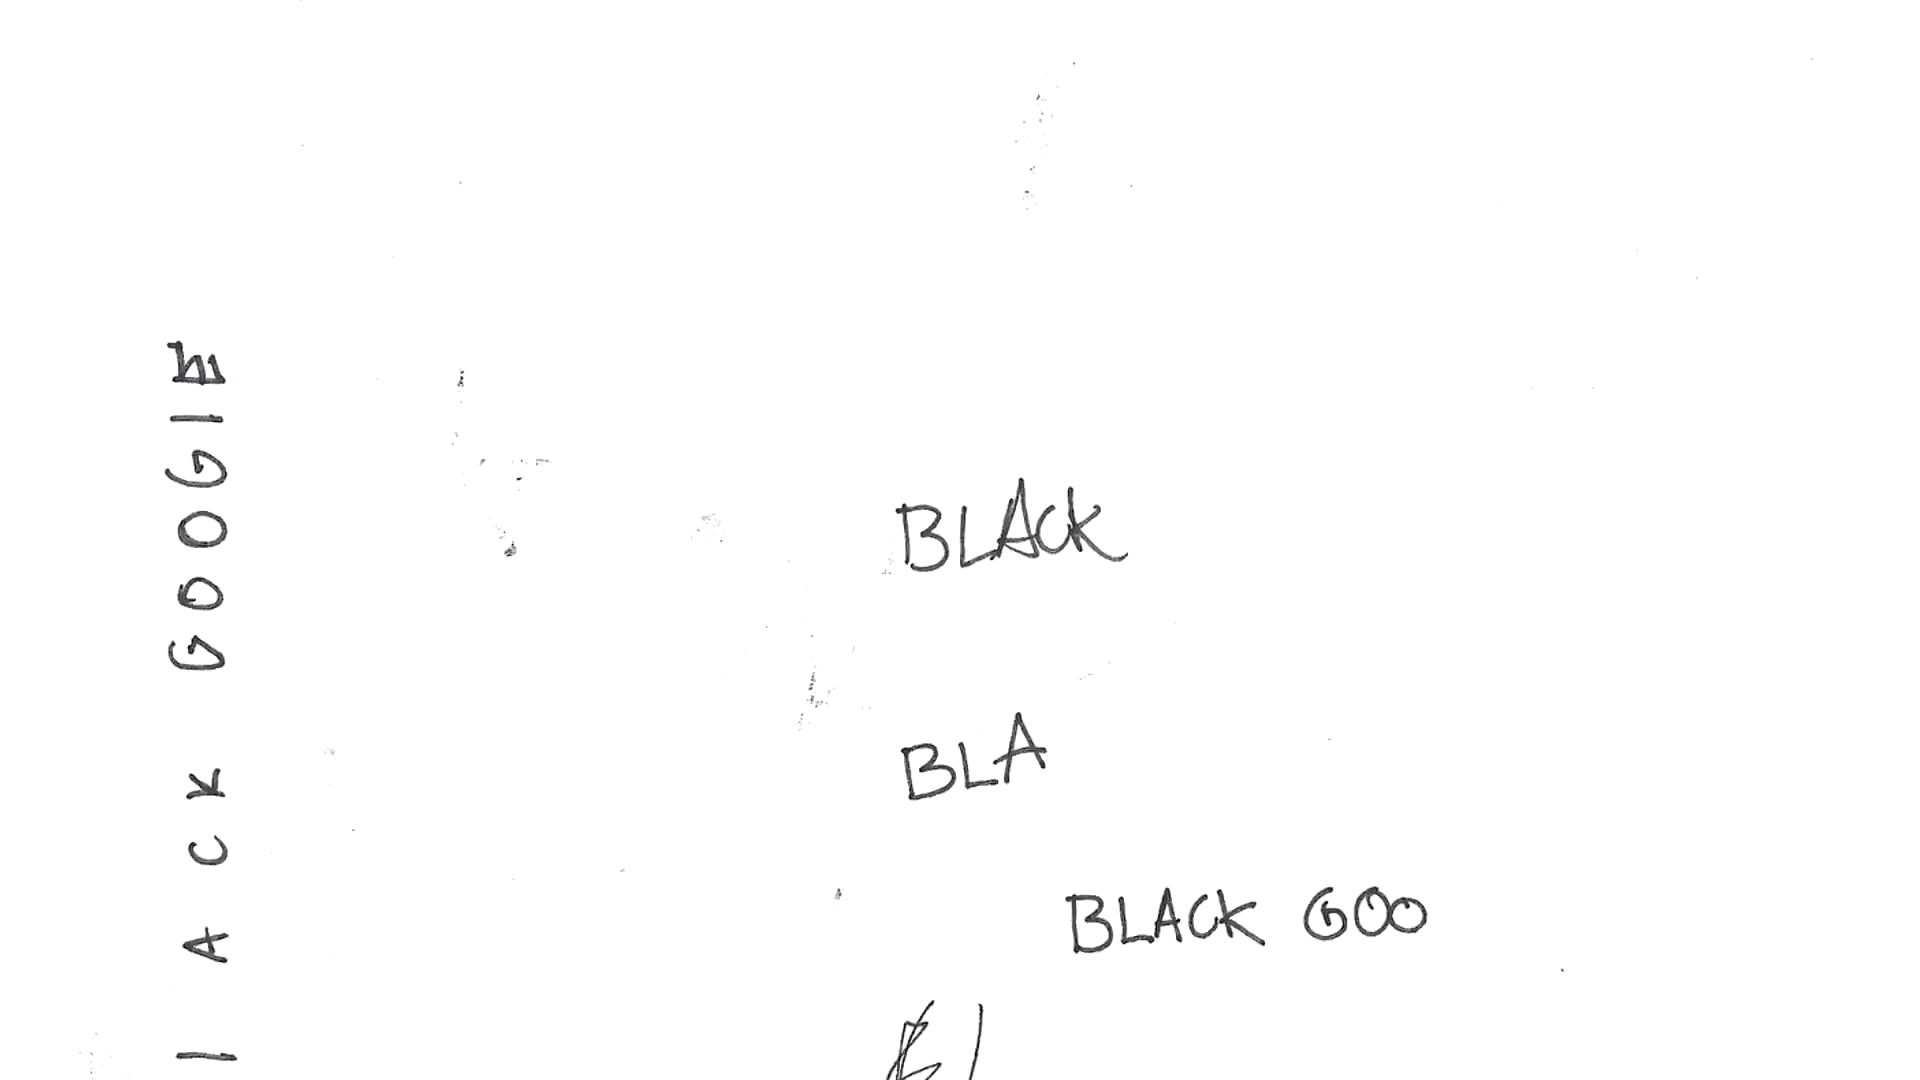 ACK GOOGIE
BLACK
BLA
BLACK GOO